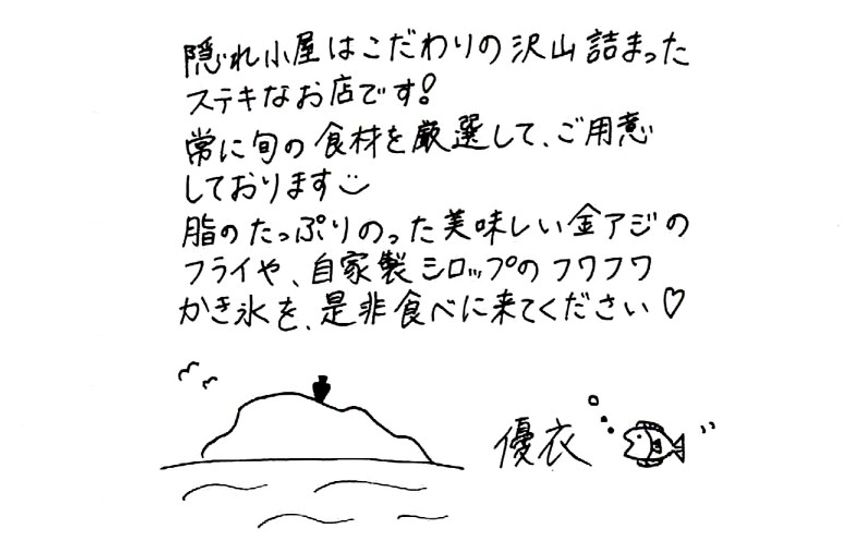 隠れ小屋はこだわりの沢山詰まった
ステキなお店です!
常に旬の食材を厳選して、ご用意
しております
脂のたっぷりのった美味しい金アジの
フライや、自家製シロップのフワフワ
かき氷を、是非食べに来てください♡
優衣